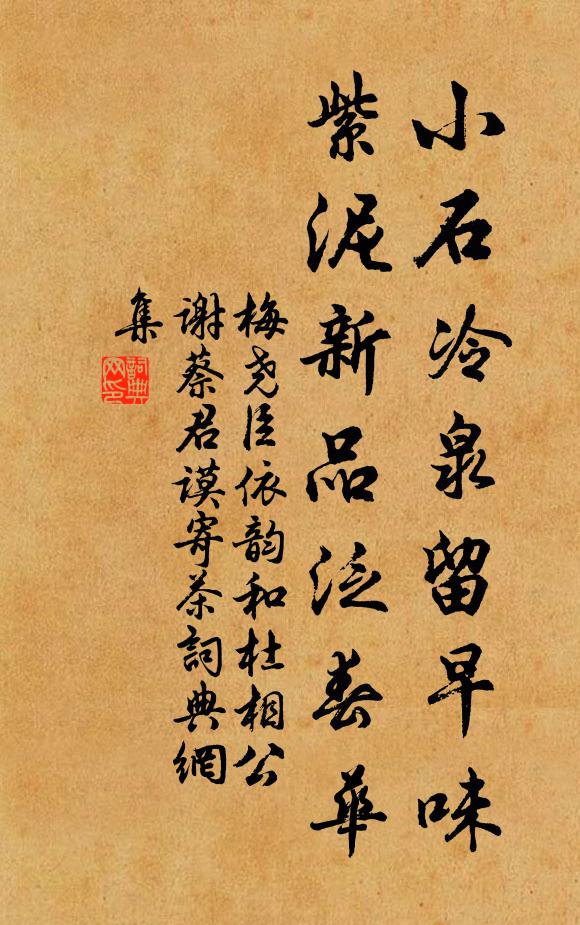 小石冷泉留早味
紫泥新品泛春華
梅堯臣依韵和杜相公
謝蔡君謨寄茶詞典網
集
詞典
网印